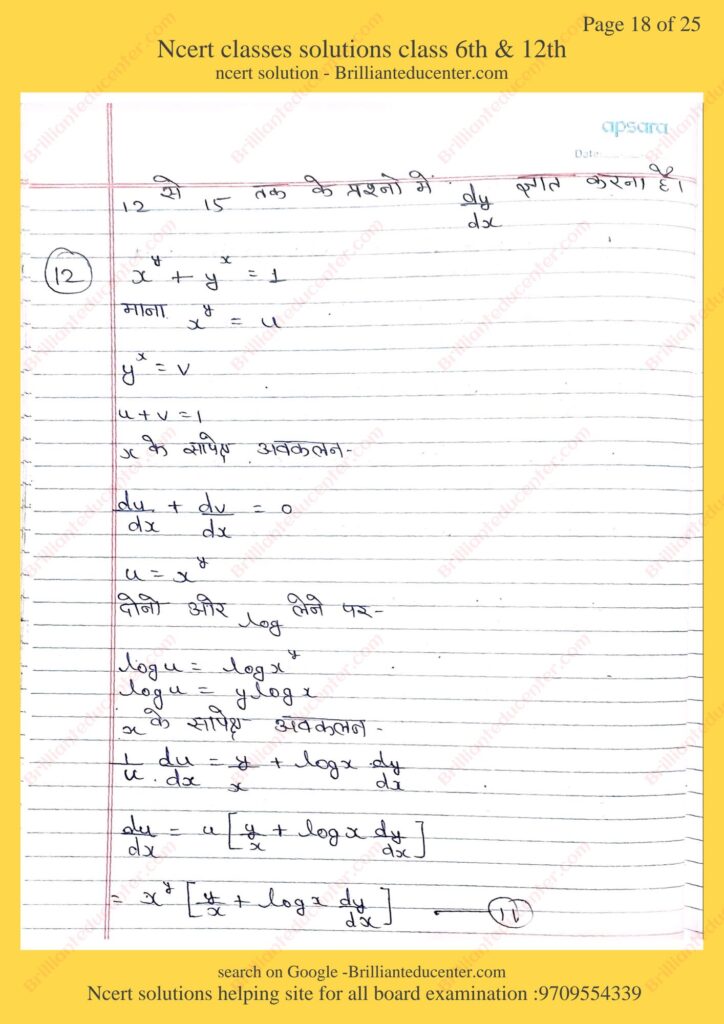 Page 18 of 25
Ncert classes solutions class 6th & 12th
ncert solution - Brillianteducenter.com
apsara
Date
12 से 15 तक के प्रश्नो में dy/dx ज्ञात करना है।
(12) x^y + y^x = 1
माना x^y = u
y^x = v
u + v = 1
x के सापेक्ष अवकलन-
du/dx + dv/dx = 0
u = x^y
दोनो ओर log लेने पर-
log u = log x^y
log u = y log x
x के सापेक्ष अवकलन -
1/u . du/dx = y/x + log x dy/dx
du/dx = u [y/x + log x dy/dx]
= x^y [y/x + log x dy/dx] — (11)
search on Google -Brillianteducenter.com
Ncert solutions helping site for all board examination :9709554339